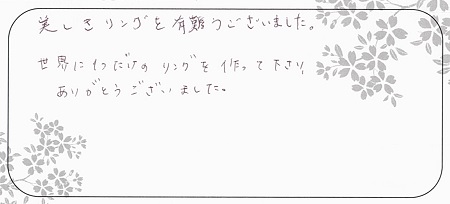 美しきリングを有難うございました。
世界に1つだけのリングを作って下さり、
ありがとうございました。